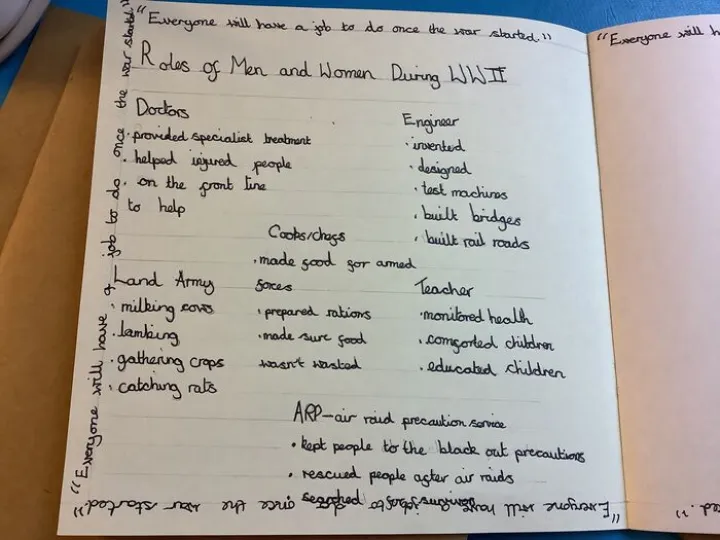 "Everyone will have a job to do once the war started."
Roles of Men and Women During WWII
Doctors
• provided specialist treatment
• helped injured people
• on the front line
to help
Engineer
• invented
• designed
• test machines
• built bridges
• built rail roads
Cooks/chefs
• made food for armed
forces
• prepared rations
• made sure food
wasn't wasted
Land Army
• milking cows
• lambing
• gathering crops
• catching rats
Teacher
• monitored health
• comforted children
• educated children
ARP-air raid precaution service
• kept people to the black out precautions
• rescued people after air raids
searched
"Everyone will have a job to do once the war started."
"Everyone will have jobs to do once the war started."
"Everyone will h
ed."